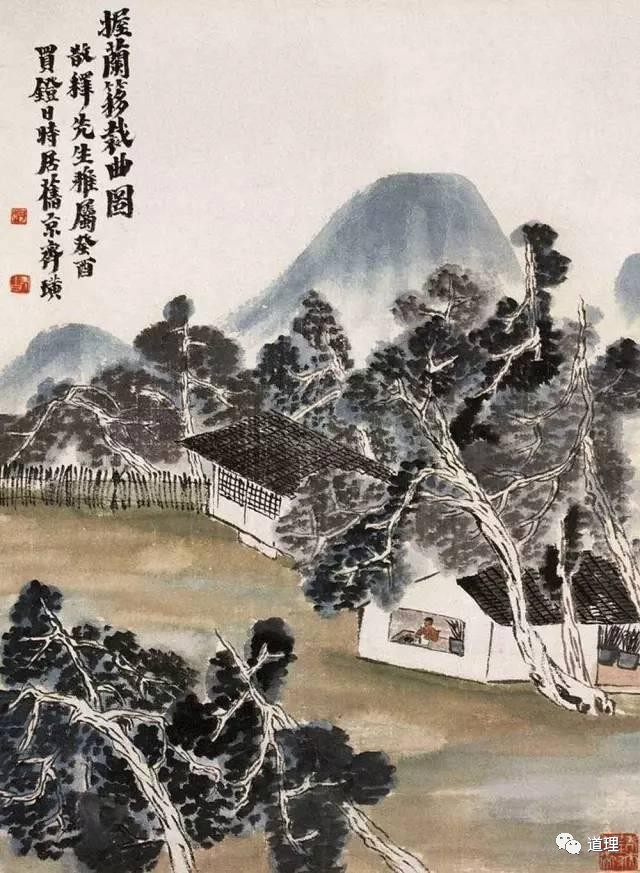 握蘭簃裁曲圖
散釋先生雅屬癸酉
買鐙日時居舊京齊璜
道理